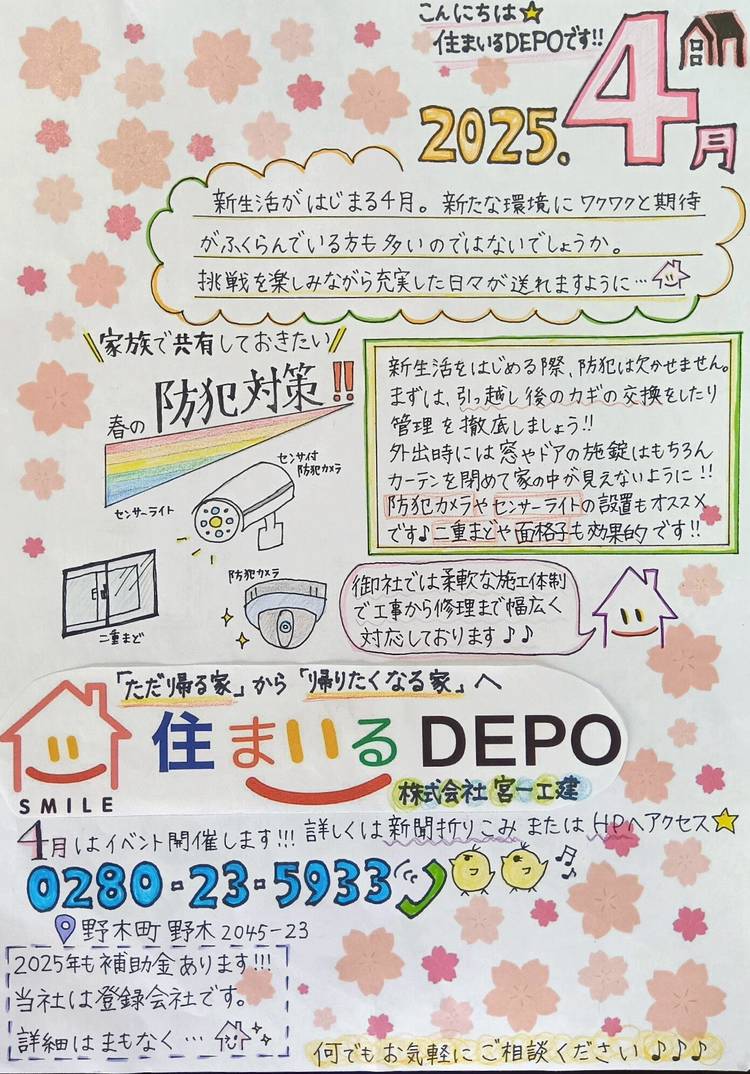 こんにちは☆
住まいるDEPOです!!
2025.4月
新生活がはじまる4月。新たな環境にワクワクと期待
がふくらんでいる方も多いのではないでしょうか。
挑戦を楽しみながら充実した日々が送れますように…
家族で共有しておきたい
春の防犯対策!!
新生活をはじめる際、防犯は欠かせません。
まずは、引っ越し後のカギの交換をしたり
管理を徹底しましょう!!
外出時には窓やドアの施錠はもちろん
カーテンを閉めて家の中が見えないように!!
防犯カメラやセンサーライトの設置もオススメ
です♪二重まどや面格子も効果的です!!
センサ付
防犯カメラ
センサーライト
防犯カメラ
二重まど
御社では柔軟な施工体制
で工事から修理まで幅広く
対応しております♪♪
「ただ帰る家」から「帰りたくなる家」へ
住まいるDEPO
SMILE
株式会社 宮一工建
4月はイベント開催します!!! 詳しくは新聞折りこみまたはHPへアクセス☆
0280-23-5933
野木町 野木2045-23
2025年も補助金あります!!!
当社は登録会社です。
詳細はまもなく…
何でもお気軽にご相談ください♪♪♪